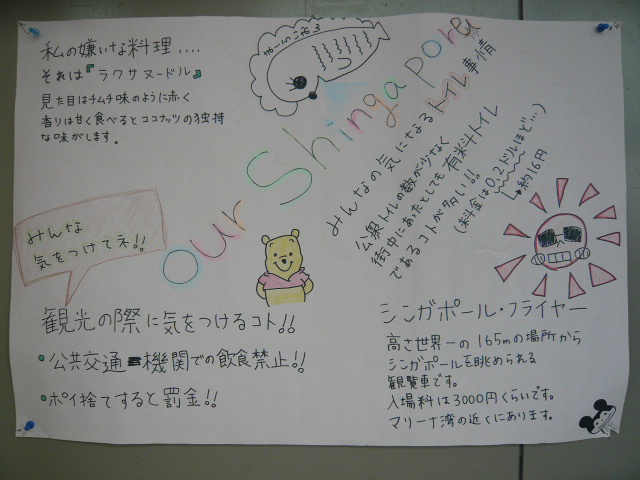 私の嫌いな料理....
それは『ラクサヌードル』
見た目はチムチ味のように赤く
香りは甘く食べるとココナッツの独特
な味がします。
our Shingapore
みんなの気になるトイレ事情
公衆トイレの数が少なく
街中にあったとしても有料トイレ
であるコトが多い!!
(料金は0.2ドルほど…)
→約16円
みんな
気をつけてネ!!
観光の際に気をつけるコト!!
公共交通機関での飲食禁止!!
ポイ捨てすると罰金!!
シンガポール・フライヤー
高さ世界一の165mの場所から
シンガポールを眺められる
観覧車です。
入場料は3000円くらいです。
マリーナ湾の近くにあります。